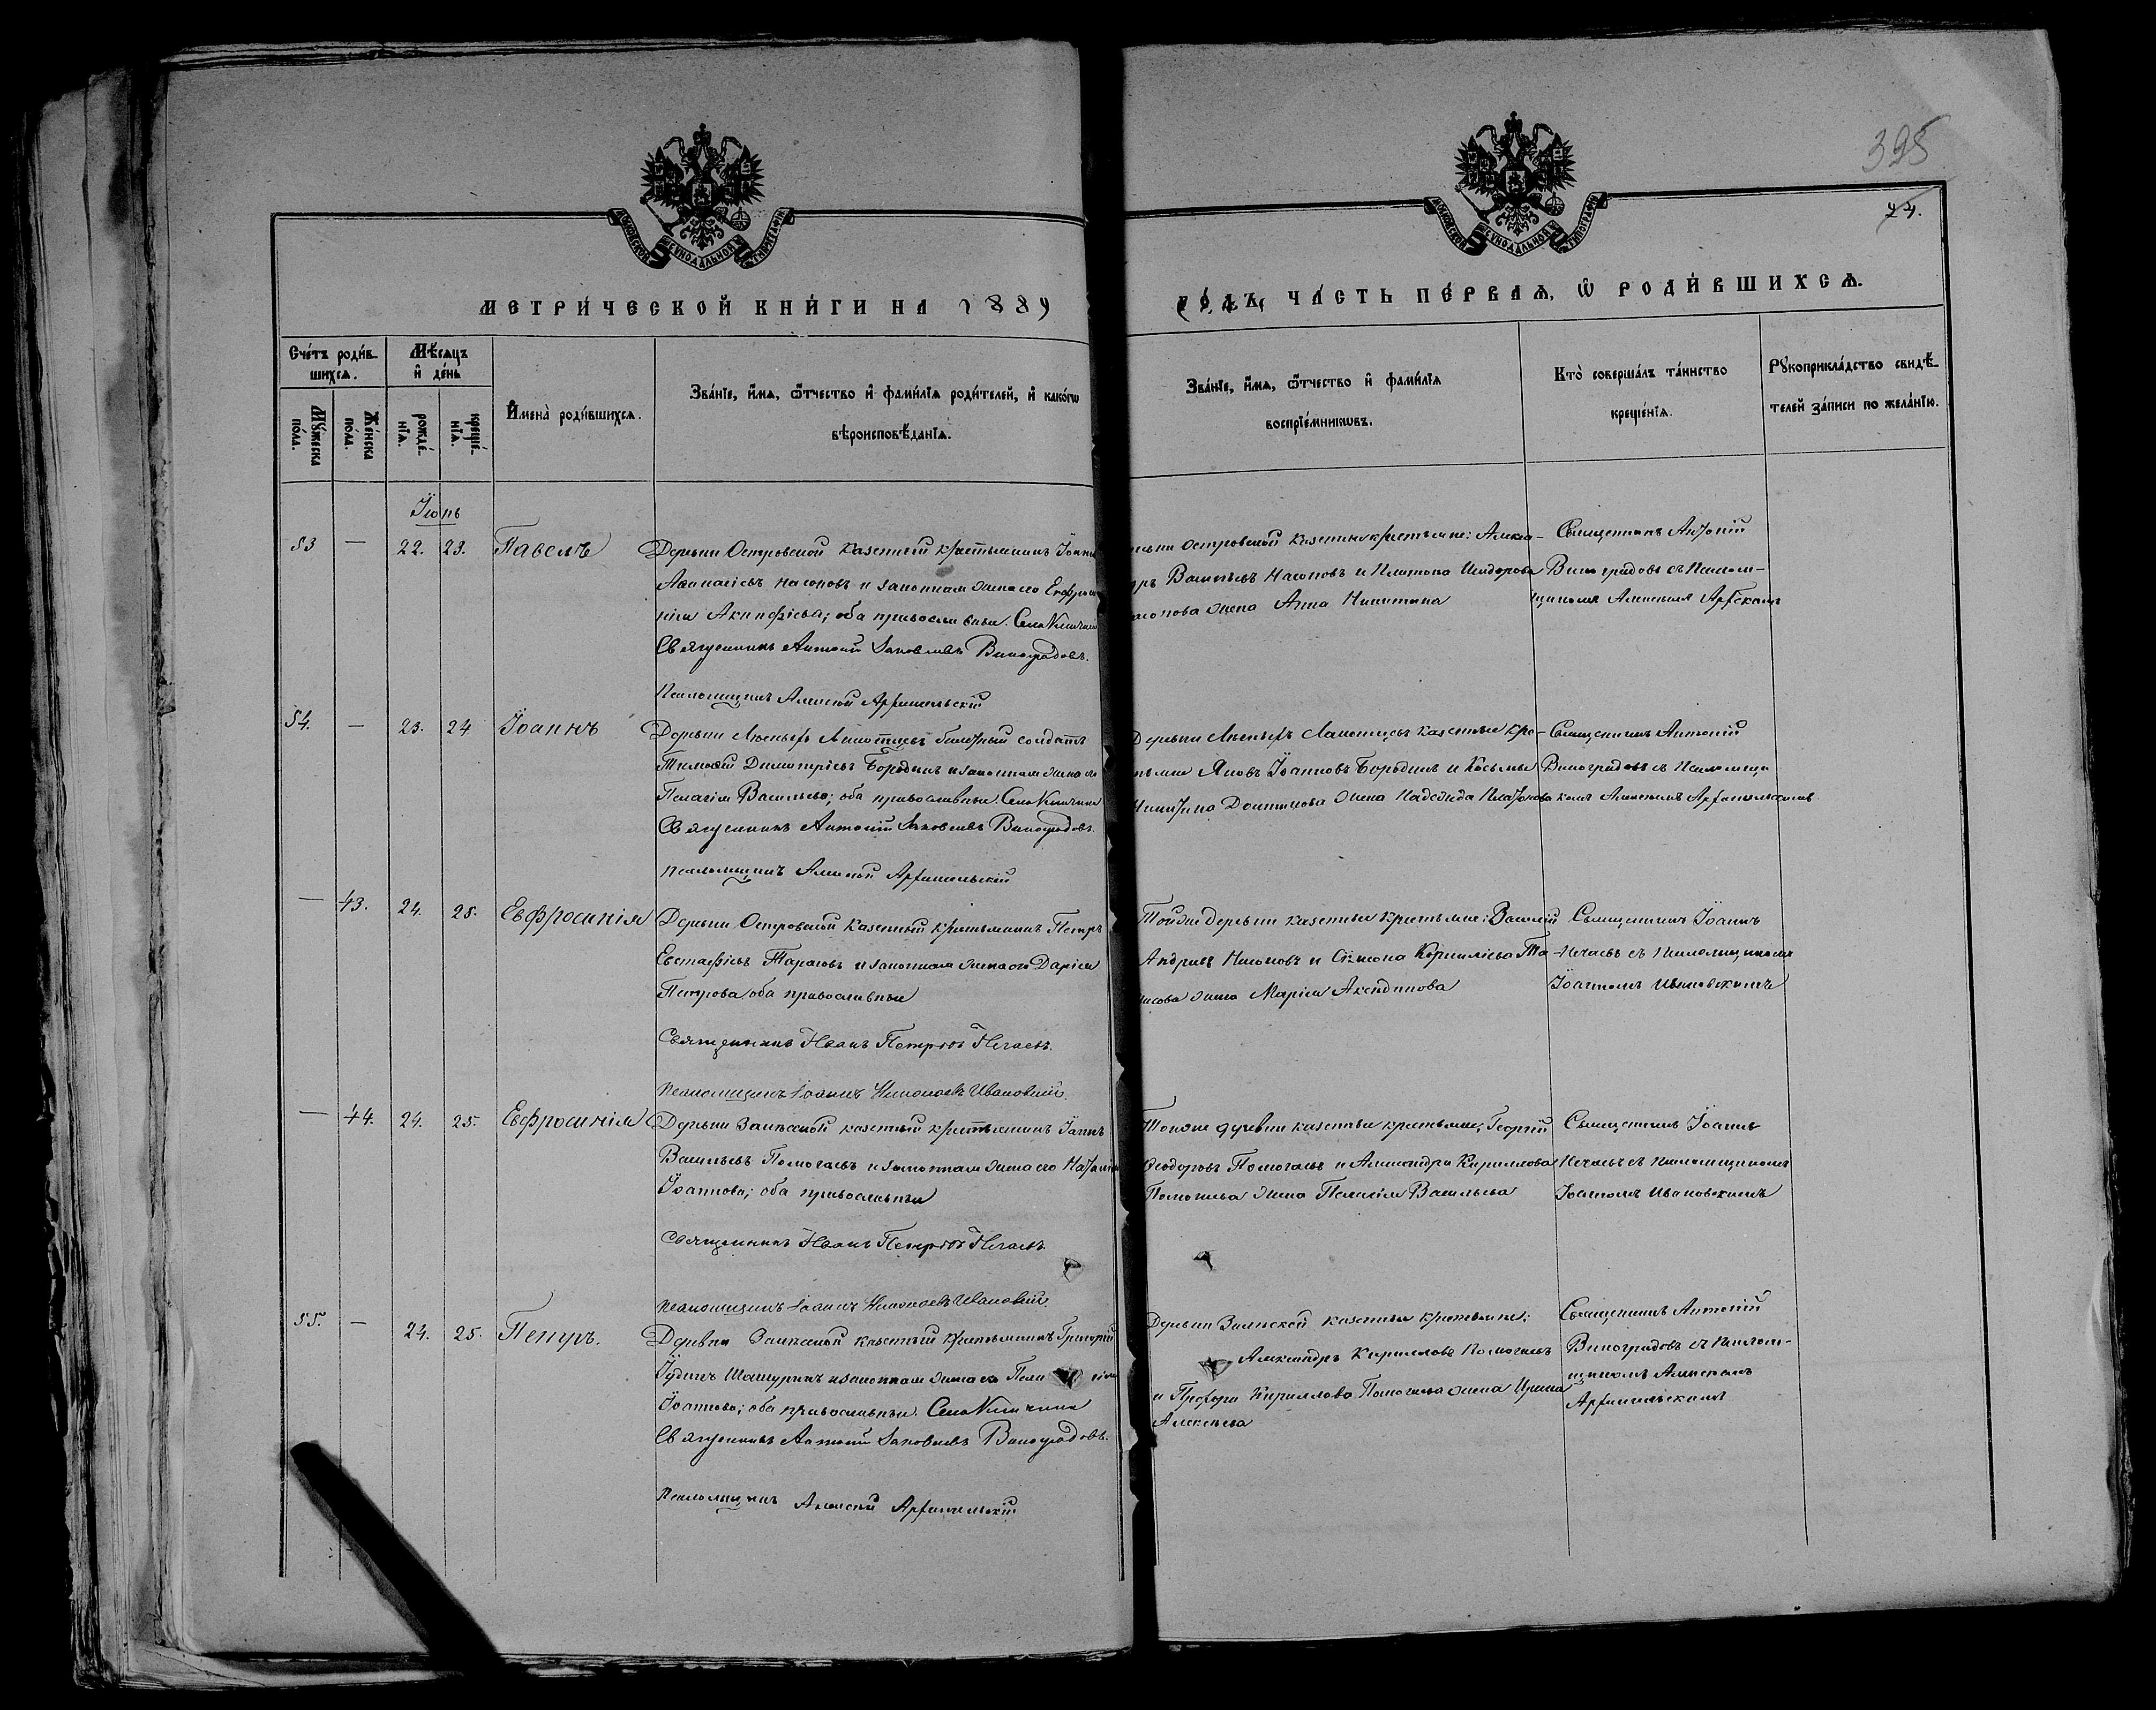 395
74.
МОСКОВСКОЙ СѴНОДАЛЬНОЙ ТИПОГРАФІИ
МОСКОВСКОЙ СѴНОДАЛЬНОЙ ТИПОГРАФІИ
МЕТРИ́ЧЕСКОЙ КНИ́ГИ НА 1889 ГО́ДЪ, ЧА́СТЬ ПЕ́РВАѦ, Ѡ҆ РОДИ́ВШИХСѦ.
Сче́тъ роди́в-
шихсѧ.
Мꙋ́жеска
по́ла.
Же́нска
по́ла.
Мѣ́сѧцъ
и҆ де́нь
рожде́-
нїѧ.
креще́-
нїѧ.
И҆мена̀ роди́вшихсѧ.
Зва́нїе, и҆́мѧ, ѻ҆́тчество и҆ фами́лїѧ роди́телей, и҆ како́гѡ
вѣроисповѣ́данїѧ.
Зва́нїе, и҆́мѧ, ѻ҆́тчество и҆ фами́лїѧ
воспрїе́мникѡвъ.
Кто̀ соверша́лъ та́инство
креще́нїѧ.
Рꙋкоприкла́дство свидѣ́-
телей за́писи по жела́нїю.
Іюнь
53 — 22. 23. Павелъ
Деревни Островской казенный крестьянинъ Іоаннъ
Аѳанасіевъ Насоновъ и законная жена его Евфроси
нія Акинфіева; оба православные. Села
Священникъ Антоній Яковлевъ Виноградовъ.
Псаломщикъ Алексѣй Архангельскій
Островской казенные крестьяне: Алекса-
дръ Васильевъ Насоновъ и Платона Исидорова
жена Анна Никитина
Священникъ Антоній
Виноградовъ съ Псалом-
щикомъ Алексѣемъ
54. — 23. 24 Іоаннъ
Деревни билетный солдатъ
Тимоѳей Димитріевъ Бородинъ и законная жена его
Пелагія Васильева; оба православные. Села
Священникъ Антоній Яковлевъ Виноградовъ.
Псаломщикъ Алексѣй Архангельскій
Деревни казенные кре-
Яковъ Іоанновъ Бородинъ и Косьмы
Никитина жена Надежда Платонова
Священникъ Антоній
Виноградовъ съ Псаломщи
комъ Алексѣемъ Архангельскимъ
— 43. 24. 25. Евфросинія
Деревни Островской казенный крестьянинъ Петръ
Евстафіевъ Тарасовъ и законная жена его Дарія
Петрова оба православные
Священникъ Иванъ Петровъ Нечаевъ.
Псаломщикъ Іоаннъ Николаевъ Ивановскій.
Той же деревни казенные крестьяне: Василій
Андреевъ Насоновъ и Симеона Корниліева Та-
расова жена Марія
Священникъ Іоаннъ
Нечаевъ съ Псаломщикомъ
Іоанномъ Ивановскимъ
— 44. 24. 25. Евфросинія
Деревни Заикской казенный крестьянинъ Іоаннъ
Васильевъ Помогаевъ и законная жена его Наталія
Іоаннова; оба православные
Священникъ Иванъ Петровъ Нечаевъ.
Псаломщикъ Іоаннъ Николаевъ Ивановскій.
Той же деревни казенные крестьяне; Георгій
Ѳеодоровъ Помогаевъ и Александра Кириллова
Помогаева жена Пелагія Васильева
Священникъ Іоаннъ
Нечаевъ съ Псаломщикомъ
Іоанномъ Ивановскимъ
55. — 24. 25. Петръ.
Деревни Заикской казенный крестьянинъ Григорій
Іудинъ Шашуринъ и законная жена его
Іоаннова; оба православные. Села
Священникъ Антоній Яковлевъ Виноградовъ.
Псаломщикъ Алексѣй Архангельскій
Деревни Заикской казенные крестьяне;
Александръ Кирилловъ Помогаевъ
и Прохора Кириллова Помогаева жена Ирина
Алексѣева
Священникъ Антоній
Виноградовъ съ Псалом-
щикомъ Алексѣемъ
Архангельскимъ